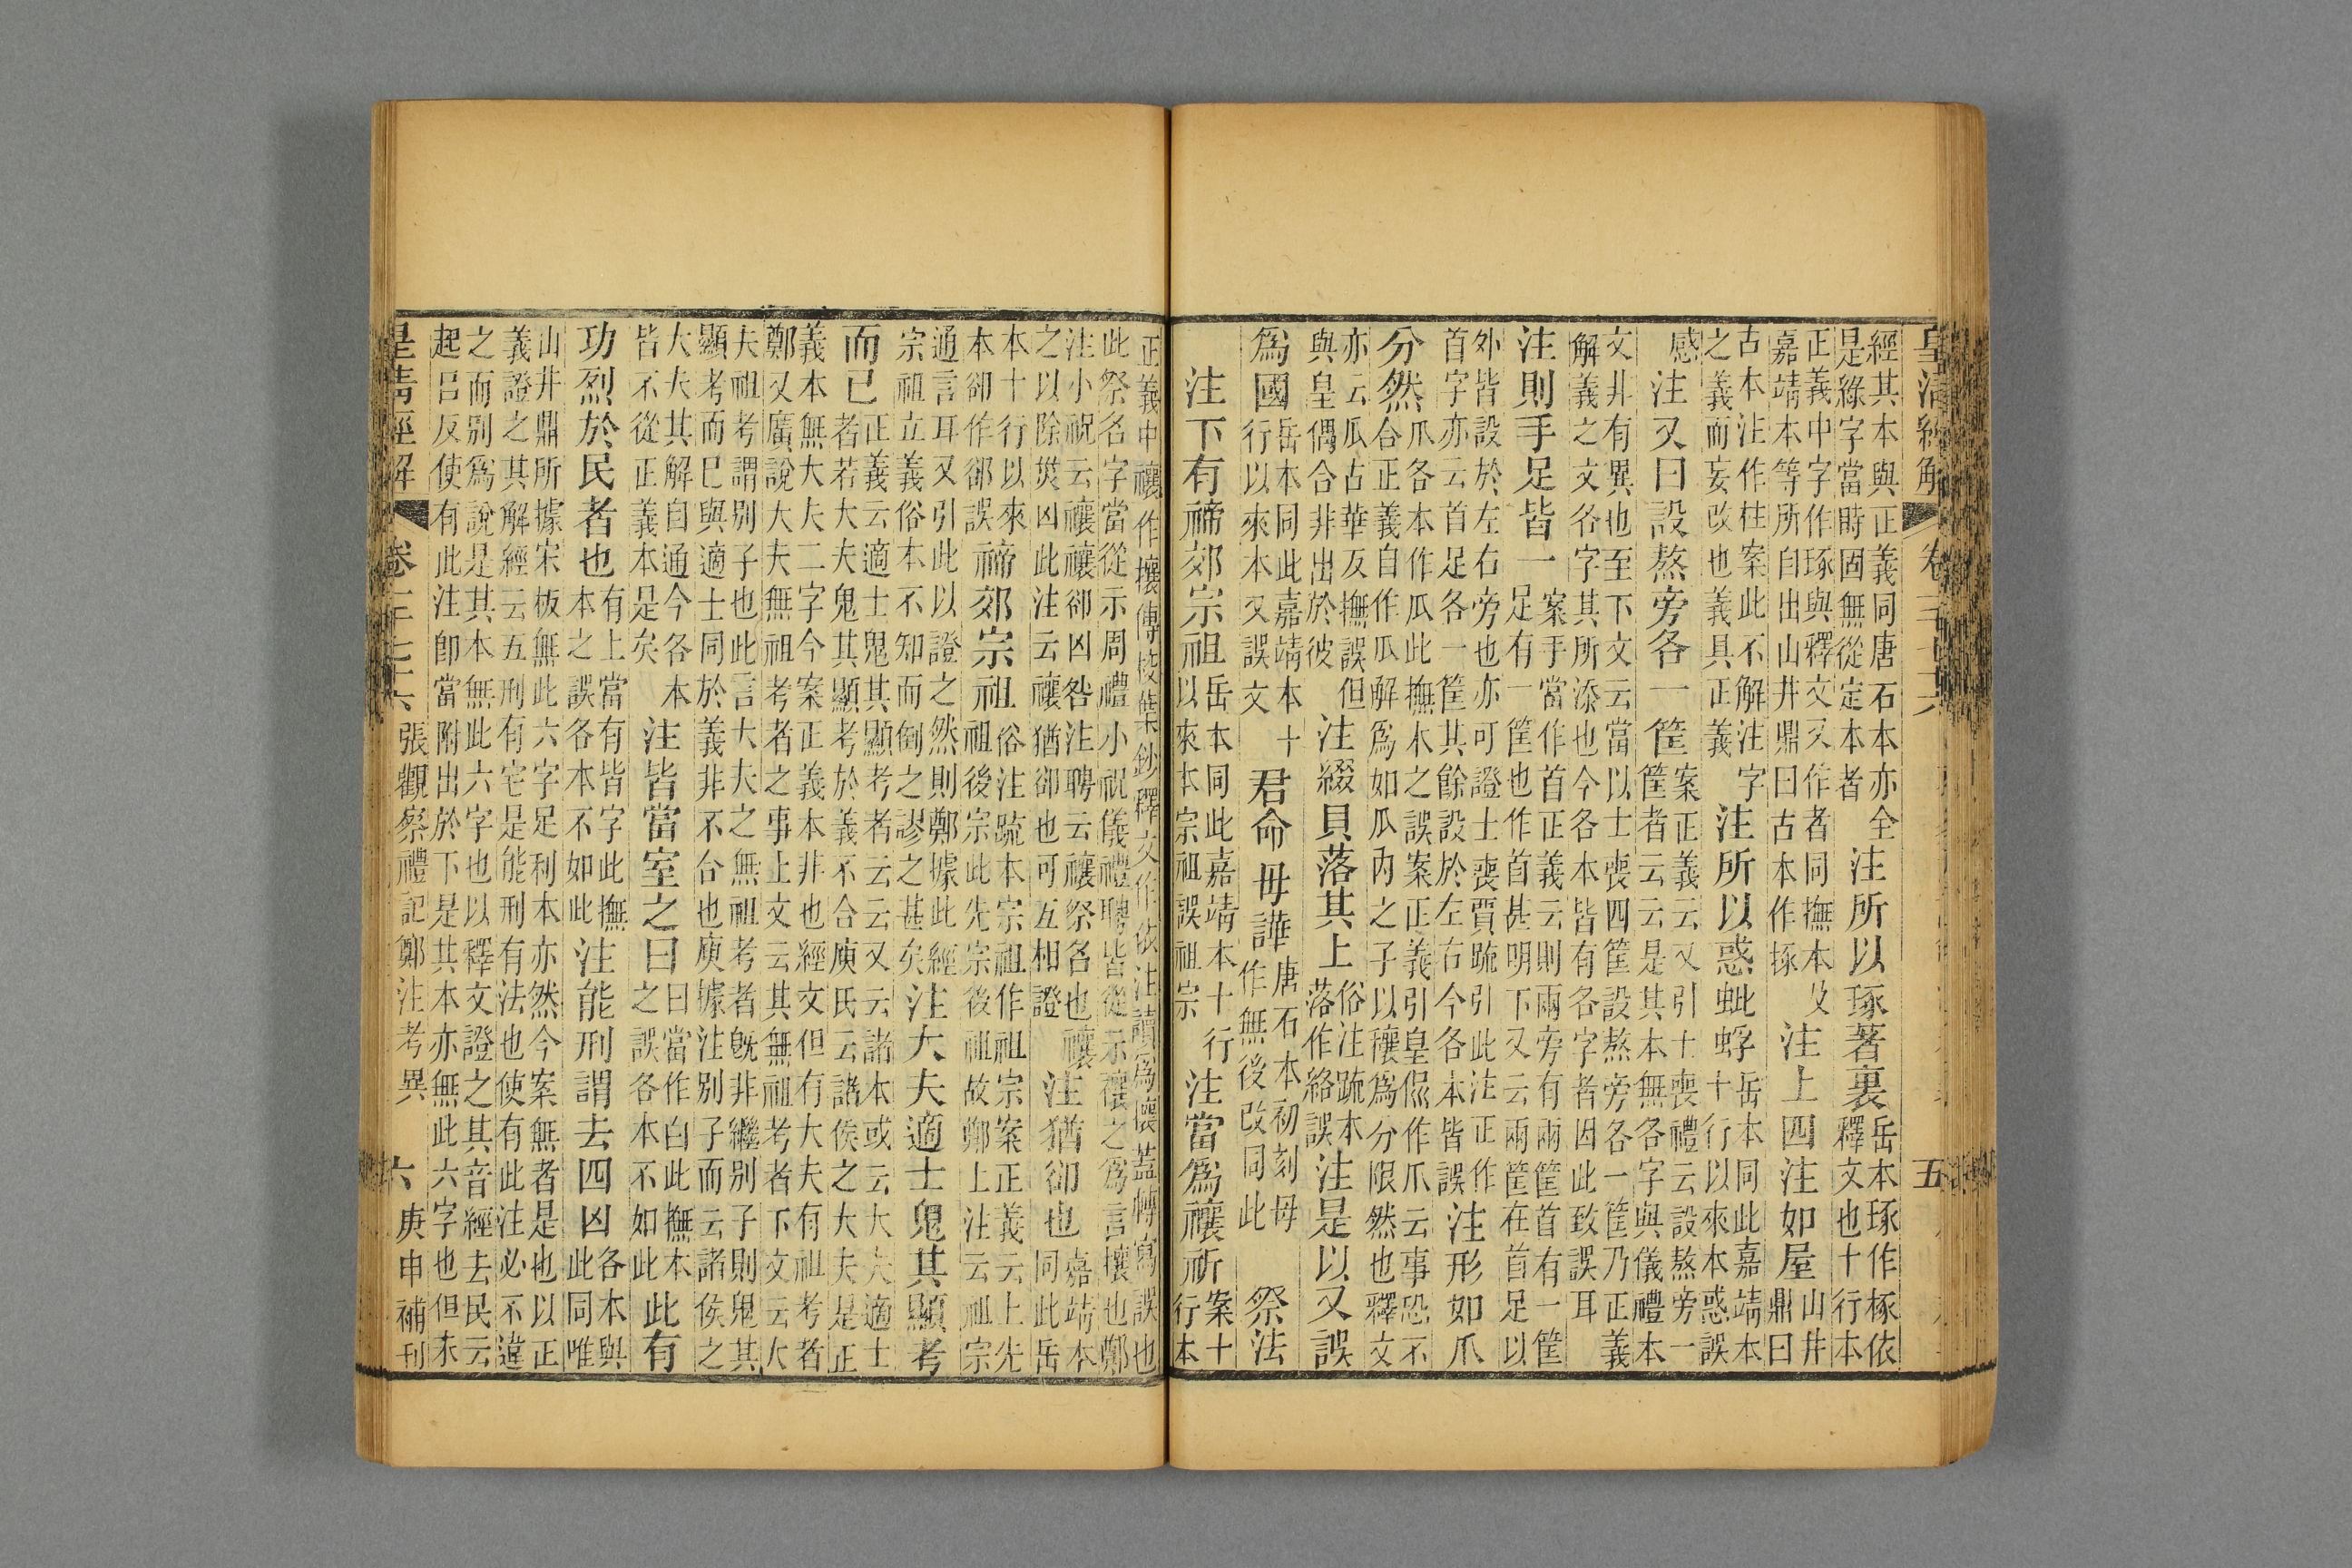 皇清經解
五
經其本與正義同唐石本亦全
是綠字當時固無從定本者
注所以琢著裏
岳本琢作椓依
釋文也十行本
正義中字作琢與釋文又作者同撫本攷
嘉靖本等所自出山井鼎曰古本作椓
注上四注如屋
山井
鼎曰
古本注作柱案此不解注字
之義而妄改也義具正義
注所以惑蚍蜉
岳本同此嘉靖本
十行以來本惑誤
感
注又曰設熬旁各一筐
案正義云又引士喪禮云設熬旁一
筐者云云是其本無各字與儀禮本
文非有異也至下文云當以士喪四筐設熬旁各一筐乃正義
解義之文各字其所添也今各本皆有各字者因此致誤耳
注則手足皆一
案手當作首正義云則兩旁有兩筐首有一筐
足有一筐也作首甚明下又云兩筐在首足以
外皆設於左右旁也亦可證士喪賈疏引此注正作
首字亦云首足各一筐其餘設於左右今各本皆誤
注形如爪
分然
爪各本作瓜此撫本之誤案正義引皇侃作爪云事恐不
合正義自作瓜解爲如瓜內之子以穰爲分限然也釋文
亦云瓜古華反撫誤但
與皇偶合非出於彼
注綴貝落其上
俗注疏本
落作絡誤
注是以又誤
爲國
岳本同此嘉靖本十
行以來本又誤文
君命毋譁
唐石本初刻毋
作無後改同此
祭法
注下有禘郊宗祖
岳本同此嘉靖本十行
以來本宗祖誤祖宗
注當爲禳祈
案十
行本
正義中禳作攘傳挍葉鈔釋文作依注讀爲攘蓋轉寫誤也
此祭名字當從示周禮小祝儀禮聘皆從示禳之爲言攘也鄭
注小祝云禳禳卻凶咎注聘云禳祭名也禳
之以除烖凶此注云禳猶卻也可互相證
注猶卻也
嘉靖本
同此岳
本十行以來
本卻作郤誤
禘郊宗祖
俗注疏本宗祖作祖宗案正義云上先
祖後宗此先宗後祖故鄭上注云祖宗
通言耳又引此以證之然則鄭據此經
宗祖立義俗本不知而倒之謬之甚矣
注大夫適士鬼其顯考
而已
正義云適士鬼其顯考者云云又云諸本或云大夫適士
者若大夫鬼其顯考於義不合庾氏云諸侯之大夫是正
義本無大夫二字今案正義本非也經文但有大夫有祖考者
鄭又廣說大夫無祖考者之事上文云其無祖考者下文云大
夫祖考謂別子也此言大夫之無祖考者旣非繼別子則鬼其
顯考而已與適士同於義非不合也庾據注別子而云諸侯之
大夫其解自通今各本
皆不從正義本是矣
注皆當室之日
日當作白此撫本
之誤各本不如此
此有
功烈於民者也
有上當有皆字此撫
本之誤各本不如此
注能刑謂去四凶
各本與
此同唯
山井鼎所據宋板無此六字足利本亦然今案無者是也以正
義證之其解經云五刑有宅是能刑有法也使有此注必不違
之而別爲說是其本無此六字也以釋文證之其音經去民云
起呂反使有此注卽當附出於下是其本亦無此六字也但未
皇清經解
張觀察禮記鄭注考異
六
庚申補刊